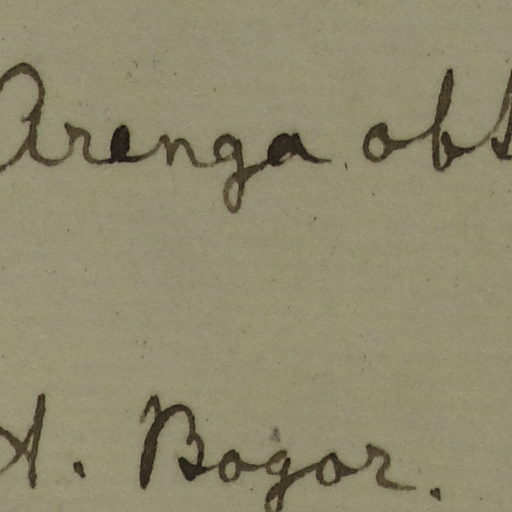 Arenga obt
H. Bogor.